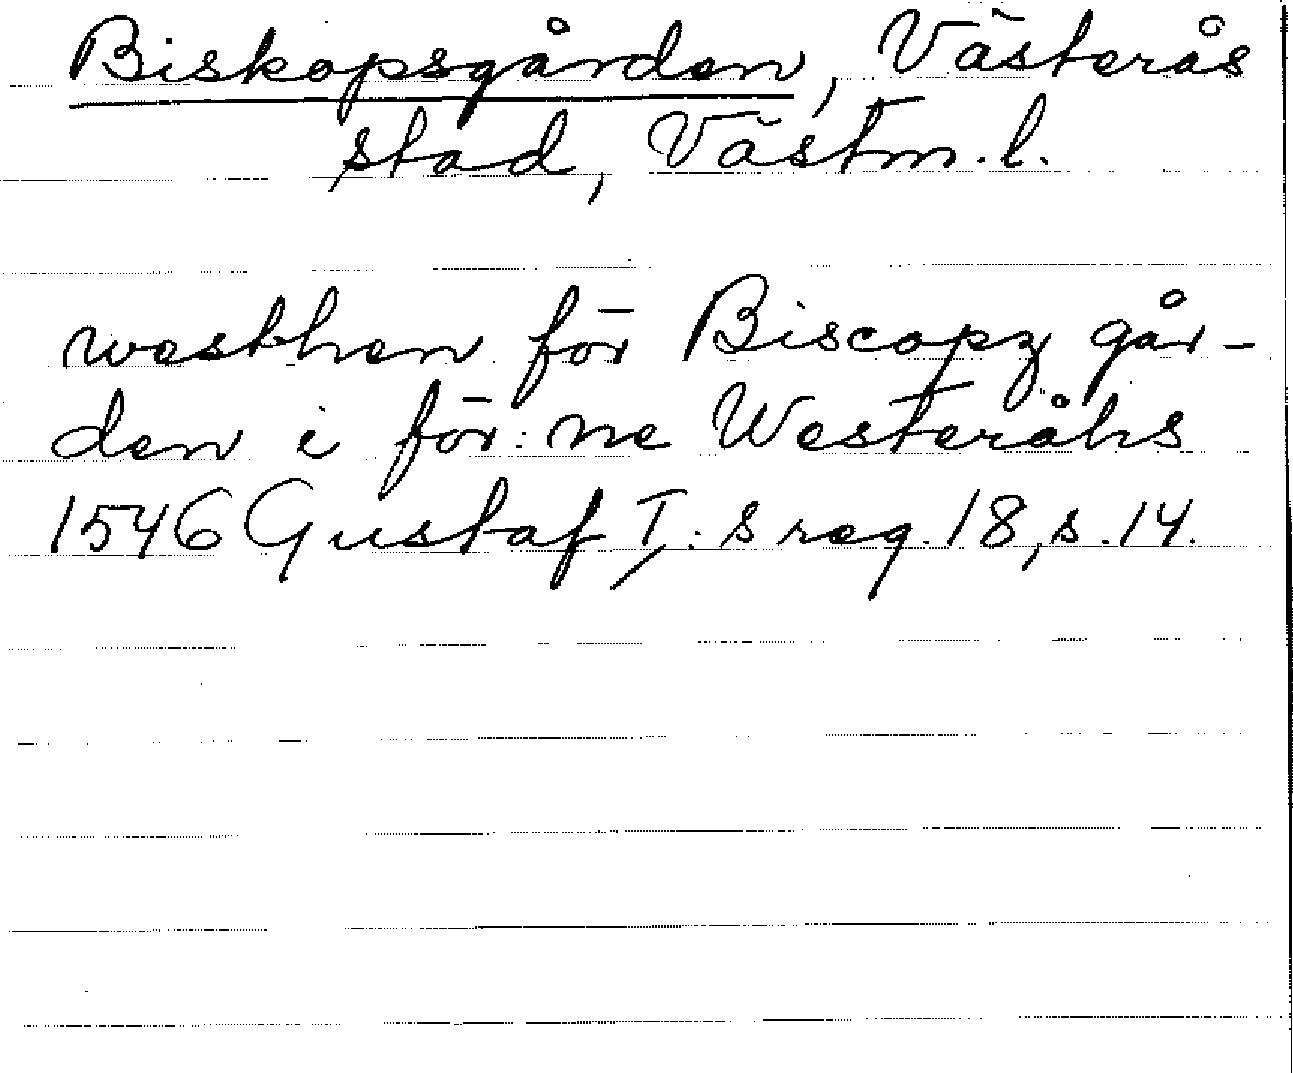 Biskopsgården, Västerås
stad, Västm.l.
westhen för Biscopz går-
den i för:ne Westeråhs
1546 Gustaf I:s reg. 18, s. 14.